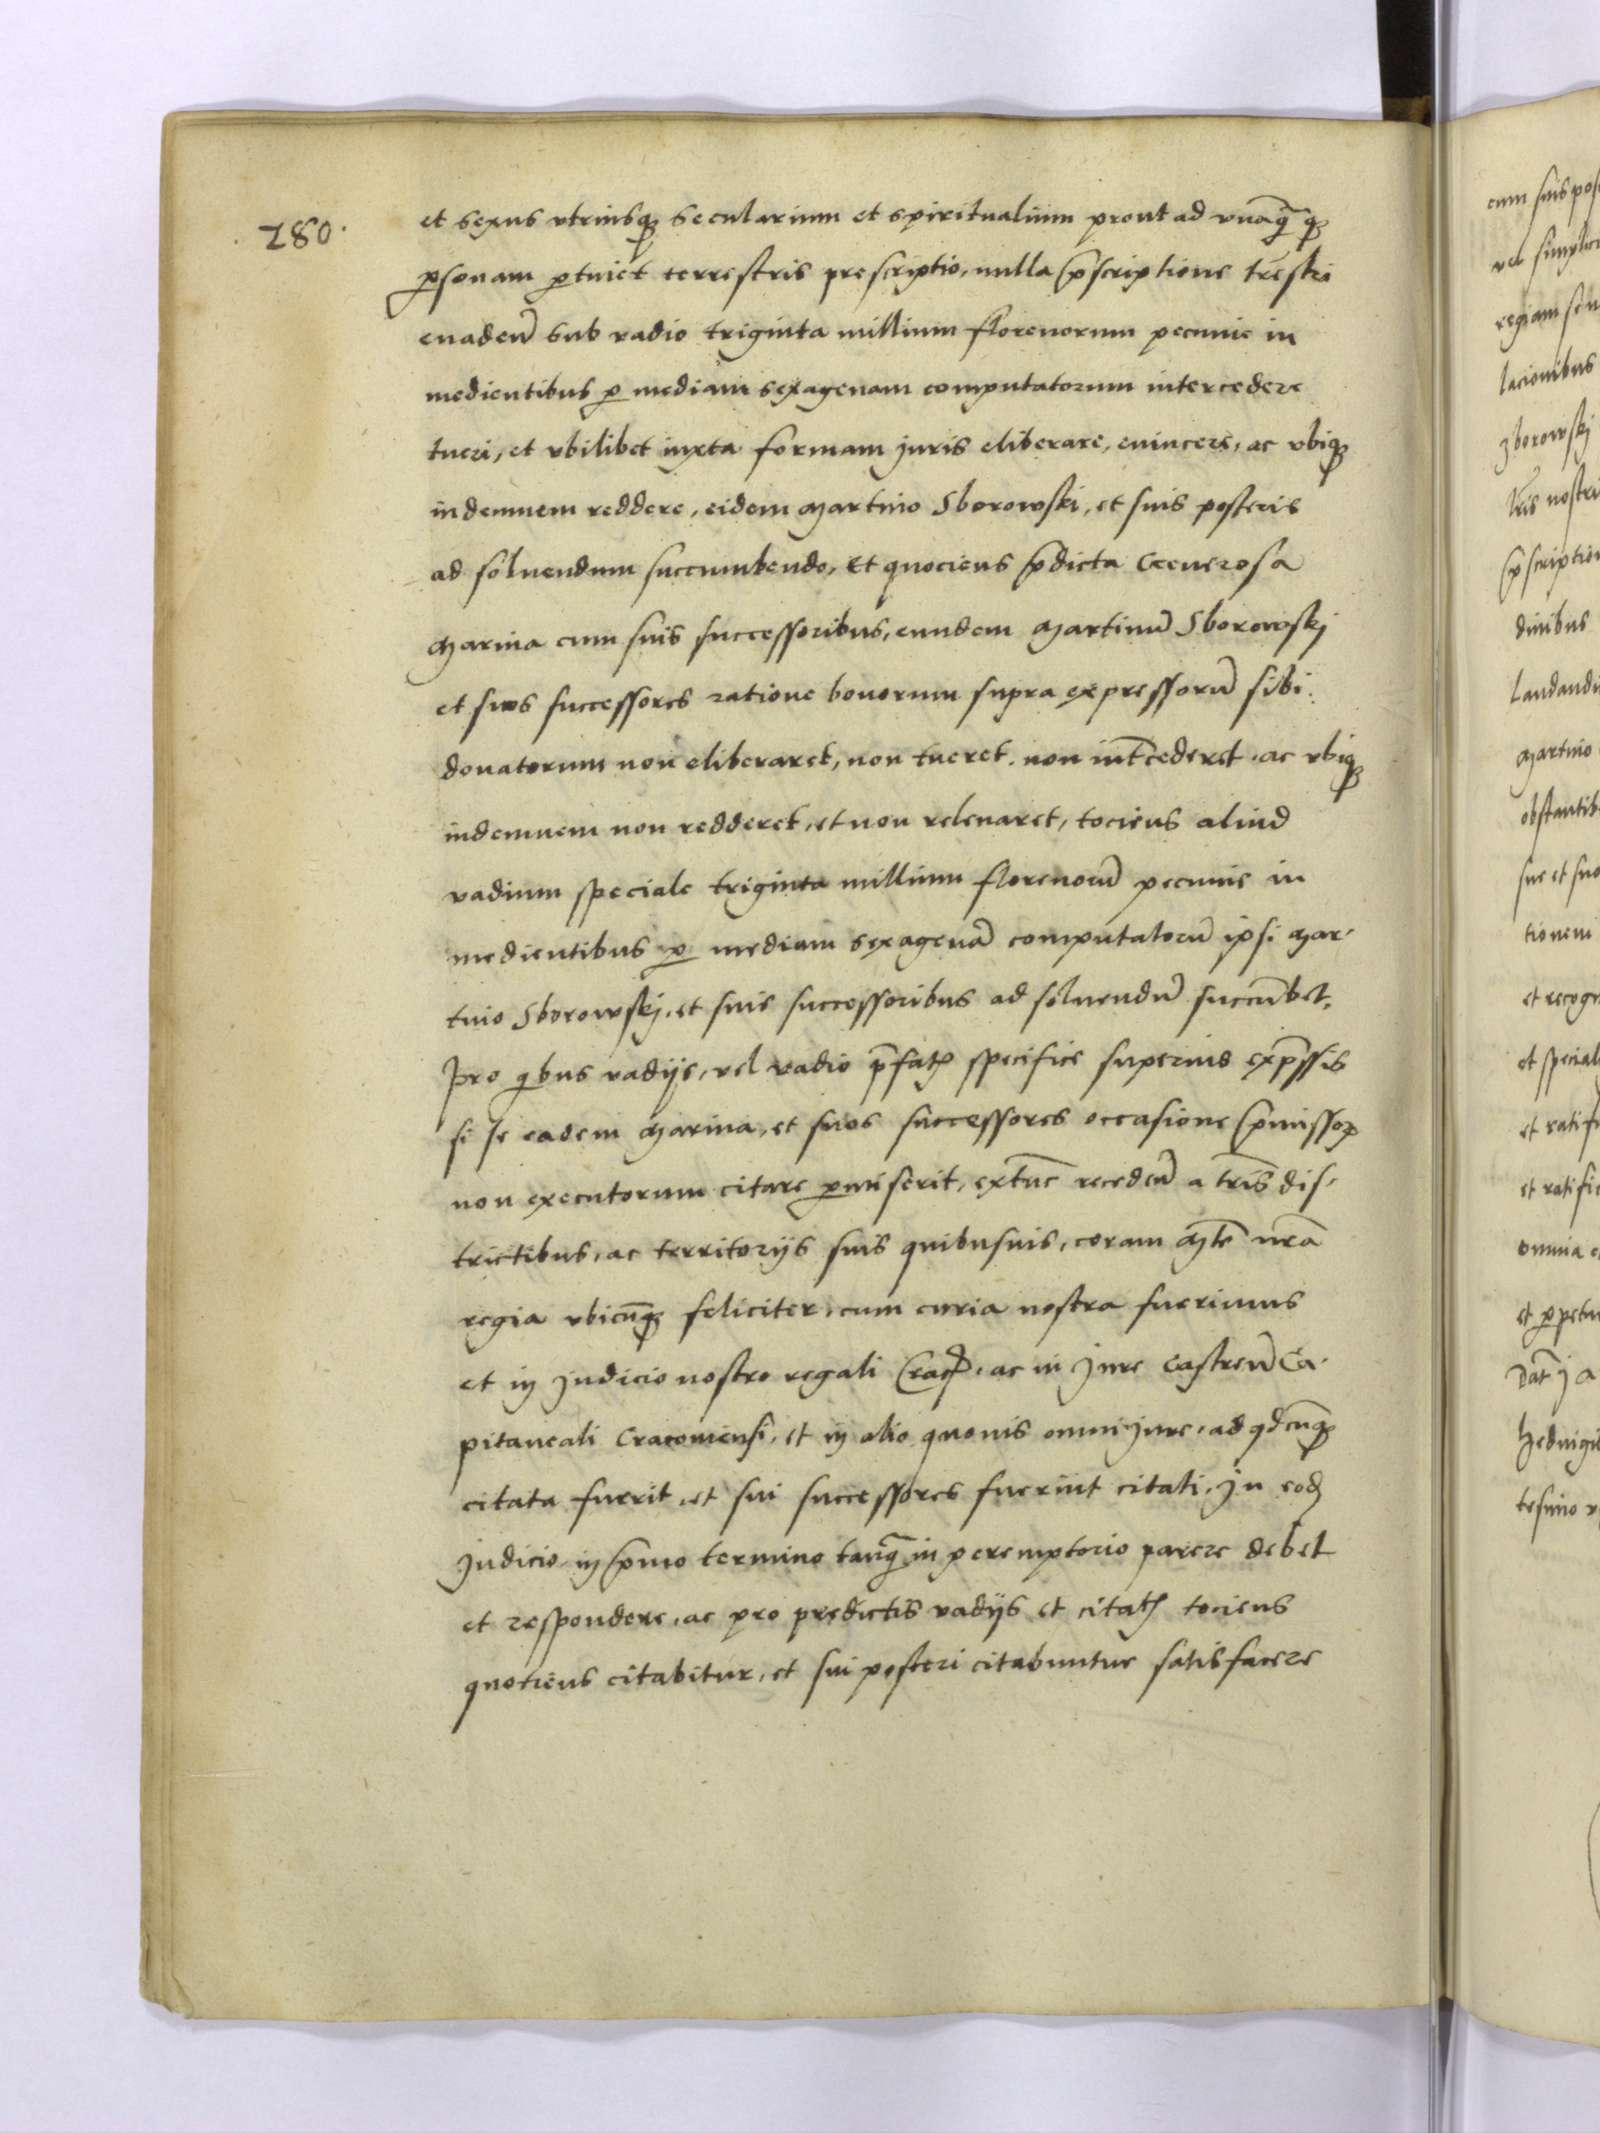 280.
et sexus vtriusq̃ secularium et spiritualium prout ad vnāq̃ q̃
p̱sonam p̱tinet terrestris prescriptio, nulla p̃scriptione tr̃estri
euaden̄ sub vadio triginta millium florenorum pecunie in
medientibus p̱ mediam sexagenam computatorum intercedere
tueri, et vbilibet iuxta formam juris eliberare, euincere, ac vbiq̃
indemnem reddere, eidem Martino Sborowski, et suis posteris
ad soluendum succumbendo, Et quociens p̃dicta Generosa
Marina cum suis successoribus, eundem Martinū Sborowskj
et suos successores ratione bonorum supra expressorū sibi
donatorum non eliberaret, non tueret. non int̄cederet. ac vbiq̃
indemnem non redderet, et non releuaret, tociens aliud
vadium speciale triginta millium florenorū pecunie in
medientibus p̱ mediam sexagenā computatorū ipsi Mar-
tino Sborowskj, et suis successoribus ad soluendū succūbet.
Pro qbus vadijs, vel vadio p̃fatꝭ specifice superius exp̃ssis
si se eadem Marina, et suos successores occasione p̃missoꝝ
non executorum citare p̱miserit, extūc receden̄ a tr̃is dis-
trictibus, ac territorijs suis quibusuis, coram Mtē nr̃a
regia vbicūq̃ feliciter, cum curia nostra fuerimus
et in Judicio nostro regali Crac̄. ac in Jure Castren̄ Ca-
pitaneali Cracouiensi, et in alio quouis omni jure, ad qđcūq̃
citata fuerit, et sui successores fuerint citati, In eod̄
Judicio in p̃mo termino tanq̃ in peremptorio parere debet
et respondere, ac pro predictis vadijs et citatꝭ tociens
quotiens citabitur, et sui posteri citabuntur satisfacere
cum suis pos
regiam
lacionibus
Zborowskj
tr̃is nostri
p̃scription
dinibus
Martino
obstantib
sue et suo
tionem
et recogn
et special
et ratifi
et ratific
omnia
et p̱petu
Dat̄
Heduigi
tesimo